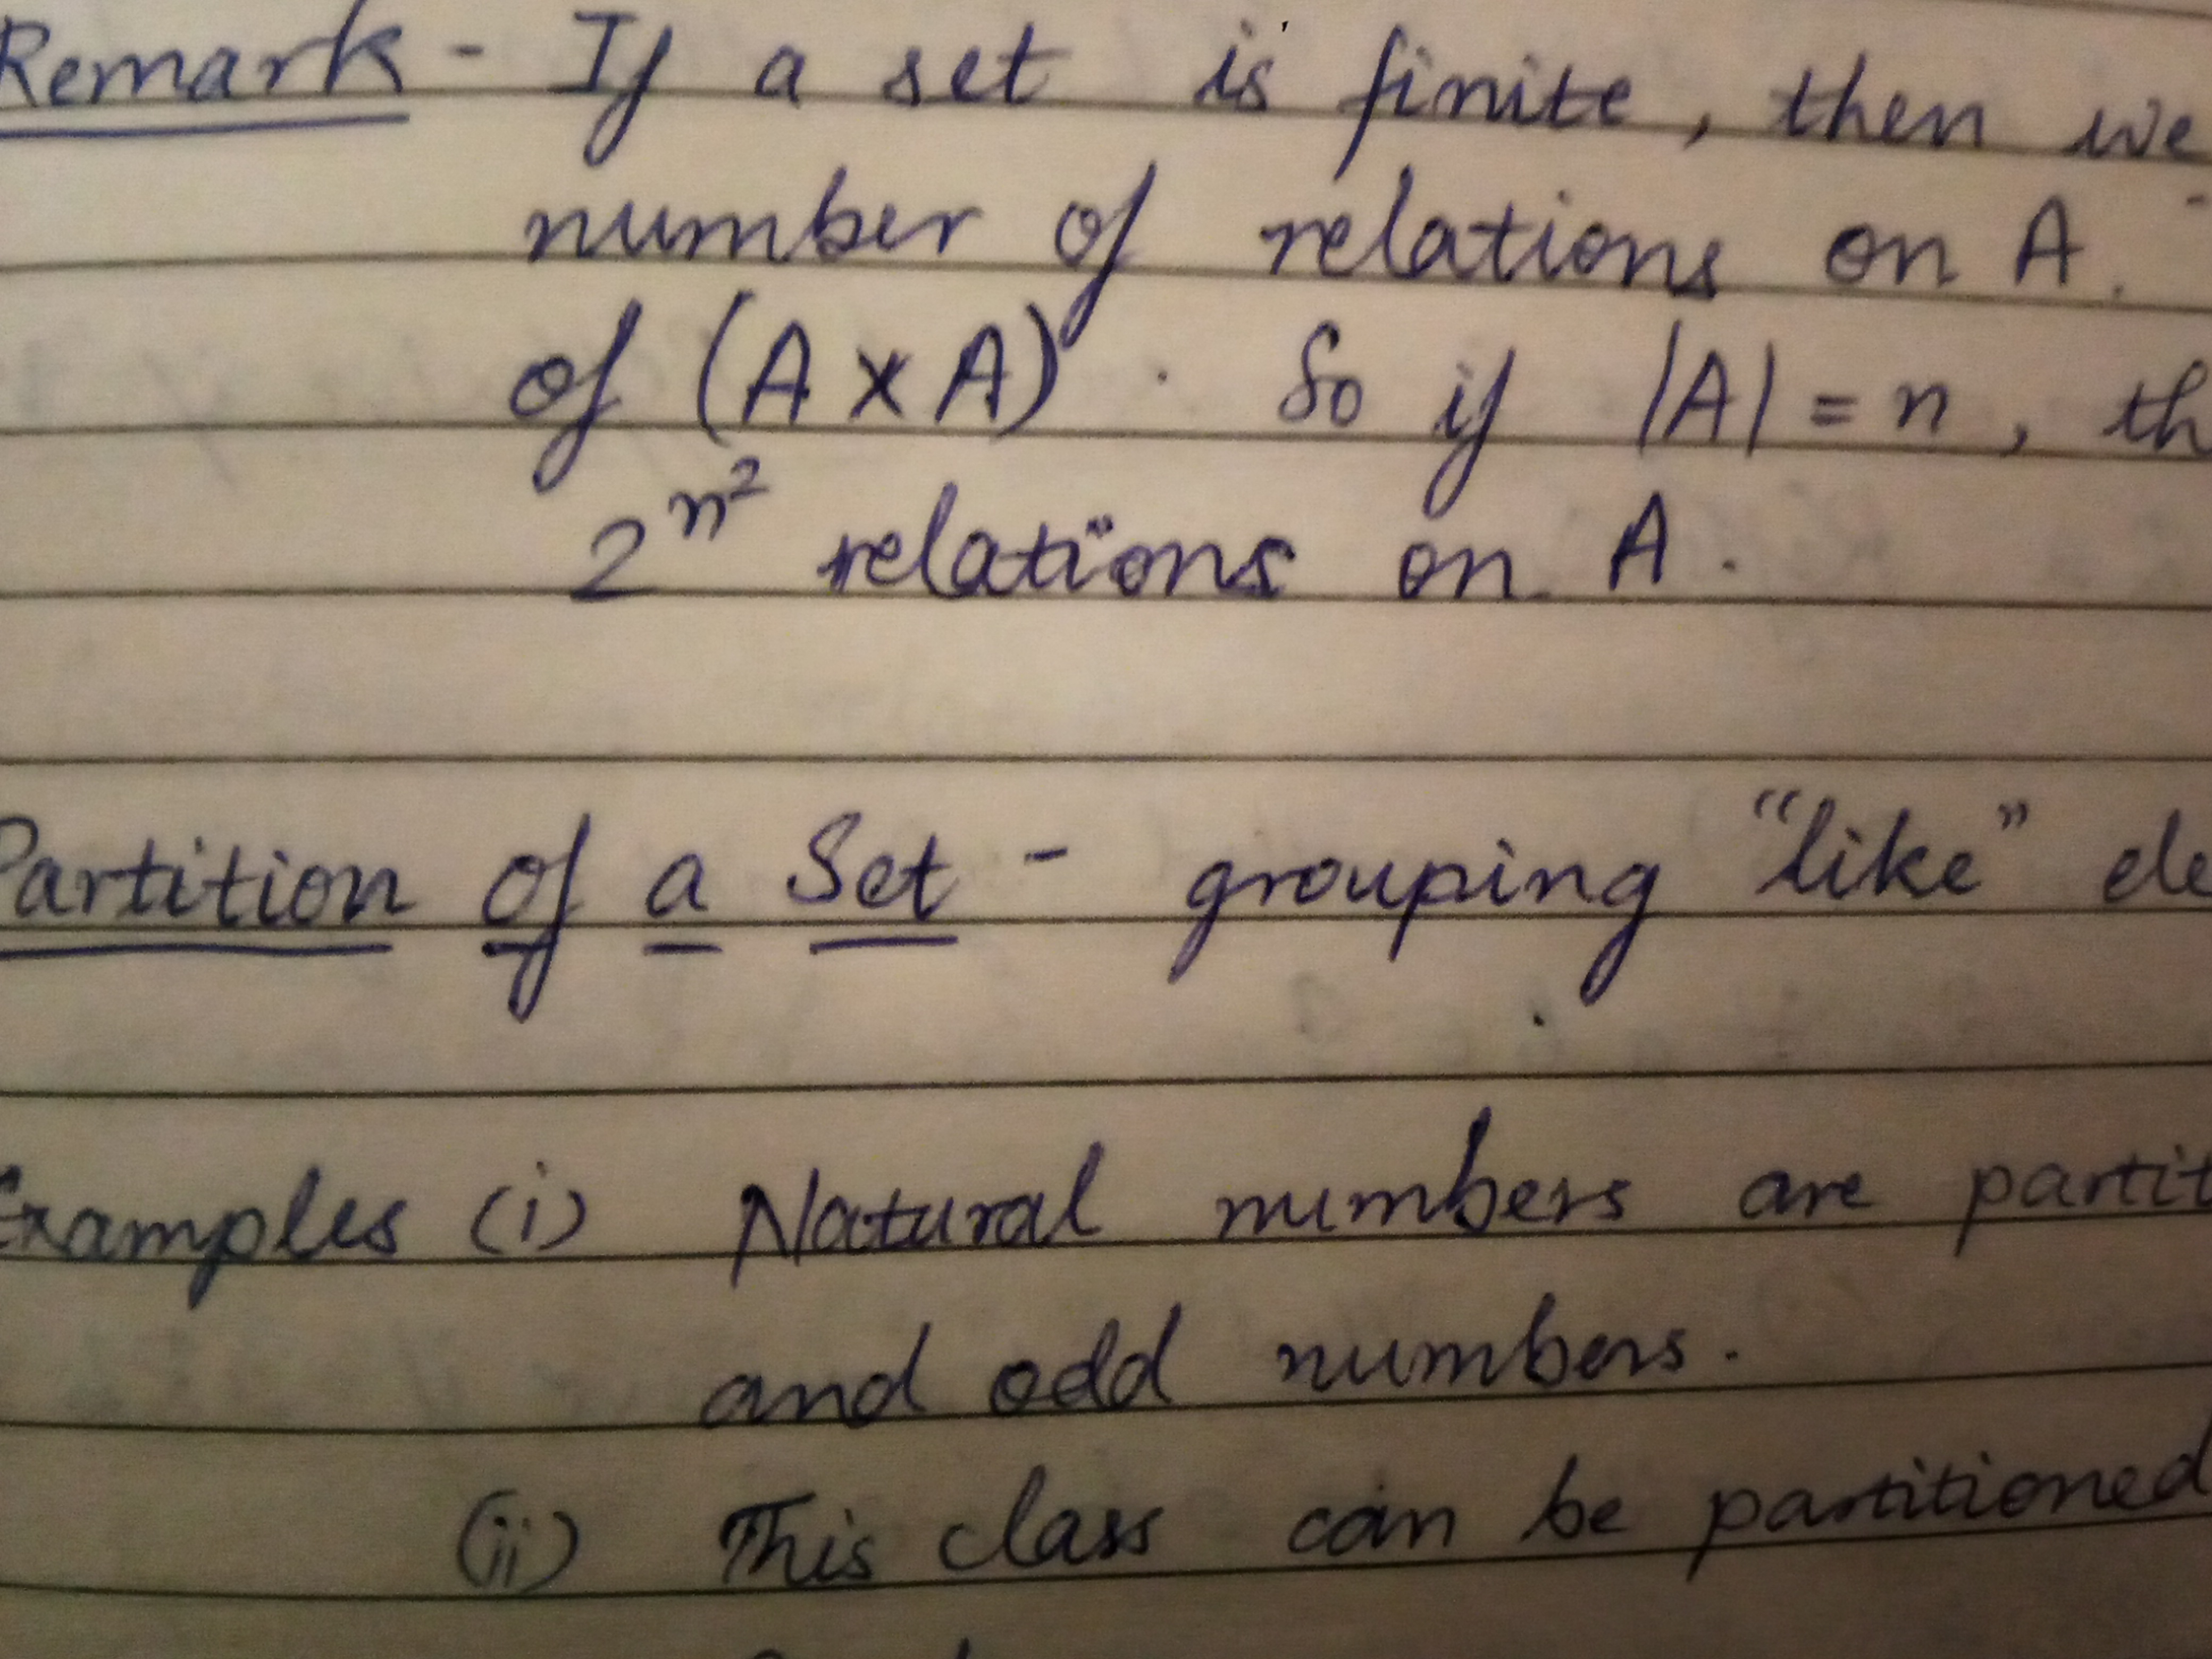 Remark - If a set is finite, then we
number of relations on A.
of (A x A). So if |A| = n, th
2^n² relations on A.
Partition of a Set - grouping "like" ele
Examples (i) Natural numbers are partit
and odd numbers.
(ii) This class can be partitioned